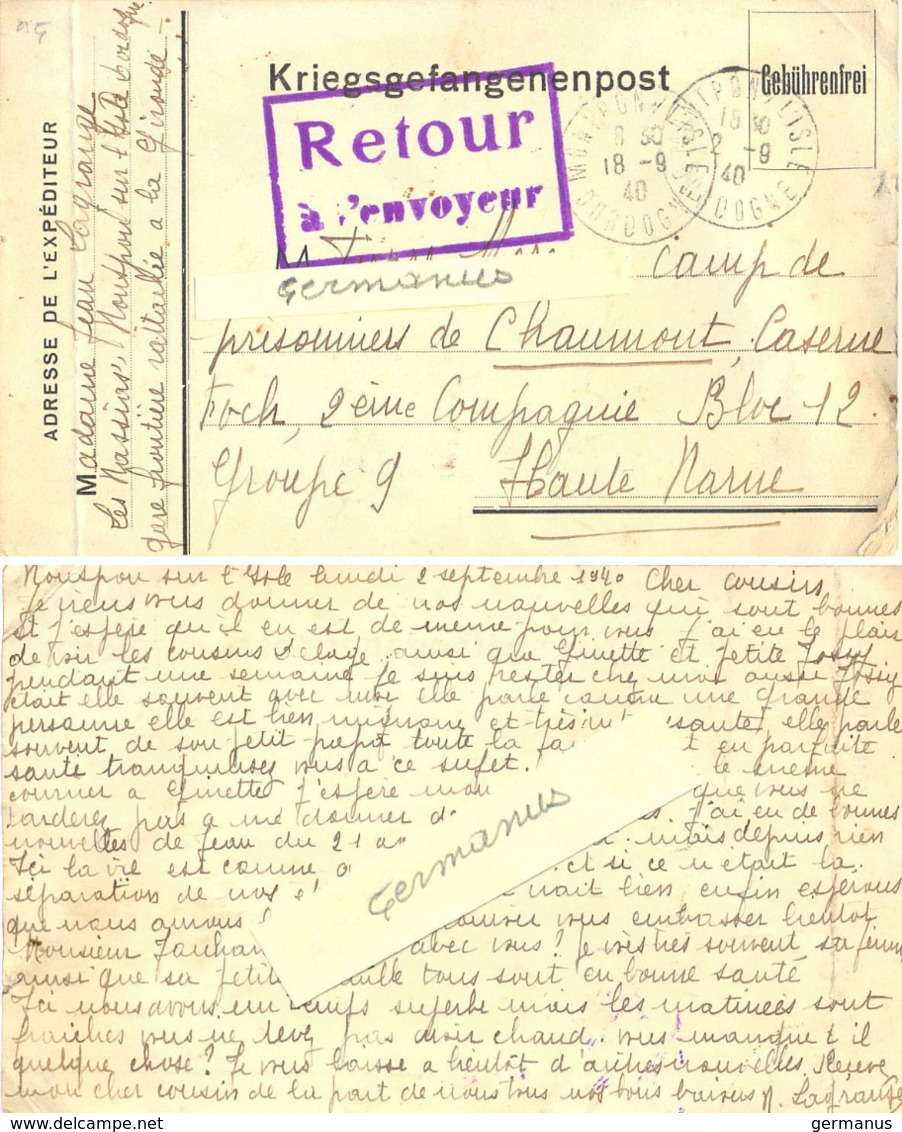 Kriegsgefangenenpost
Gebührenfrei
Retour
à l'envoyeur
MONTPON S/L'ISLE
8 30
18 -9
40
DORDOGNE
18 30
2 -9
40
ADRESSE DE L'EXPÉDITEUR
Madame Jean Lagrange
Les Massias Montpon sur l'Isle Dordogne
gare frontière rattachée a la Gironde
M
Germanus
Camp de
prisonniers de Chaumont, Caserne
Foch, 2ème Compagnie Bloc 12
Groupe 9 Haute Marne
Montpon sur l'Isle lundi 2 septembre 1940 Cher cousins
Je viens vous donner de nos nouvelles qui sont bonnes
et j'espère qu'il en est de même pour vous j'ai eu le plaisir
de voir les cousins Delage ainsi que Ginette et petite Josy
pendant une semaine je suis rester chez moi aussi Jossy
était elle souvent avec moi elle parle comme une grande
personne elle est bien mignone et très elle parle
souvent de son petit papa toute la en parfaite
santé tranquilisez vous a ce sujet. le même
courrier a Ginette j'espère que vous ne
tarderez pas a me donner j'ai eu de bonnes
nouvelles de Jean du 21 mais depuis rien
Ici la vie est comme et si ce n'était la
séparation de nos bien enfin espérons
que nous aurons vous embrasser bientot
Monsieur avec vous? je vois très souvent sa femme
ainsi que sa petite tous sont en bonne santé
Ici nous avons un temps superbe mais les matinées sont
fraiches vous ne devez pas avoir chaud vous manque t il
quelque chose? Je vous laisse a bientot d'autres nouvelles Recevez
mon cher cousin de la part de nous tous nos bons baisers M. Lagrange
Germanus
germanus